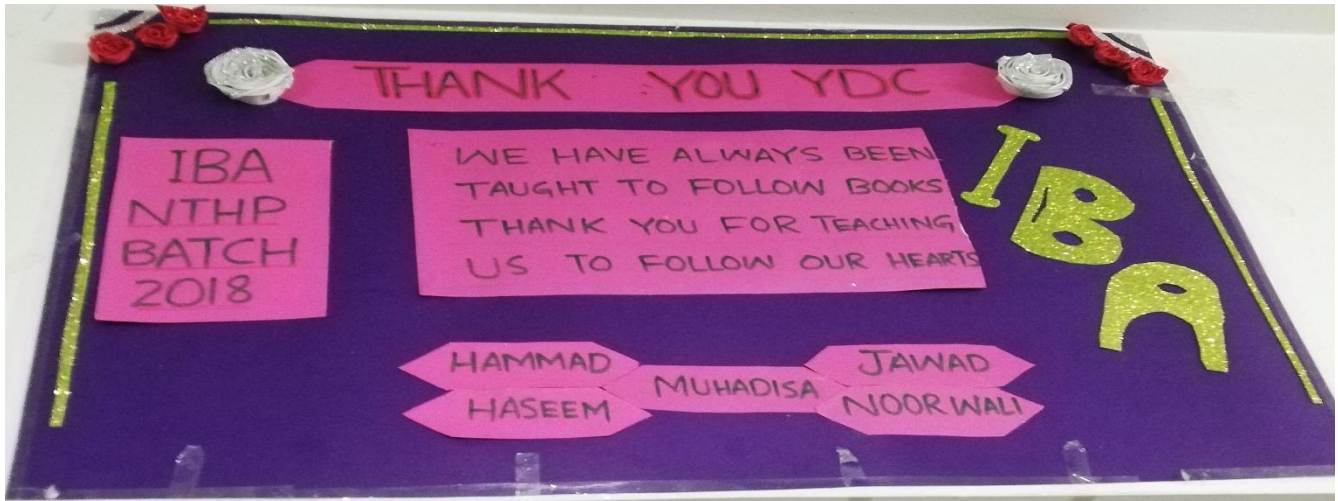 THANK YOU YDC
IBA
NTHP
BATCH
2018
WE HAVE ALWAYS BEEN
TAUGHT TO FOLLOW BOOKS
THANK YOU FOR TEACHING
US TO FOLLOW OUR HEARTS
IBA
HAMMAD
HASEEM
MUHADISA
JAWAD
NOOR WALI